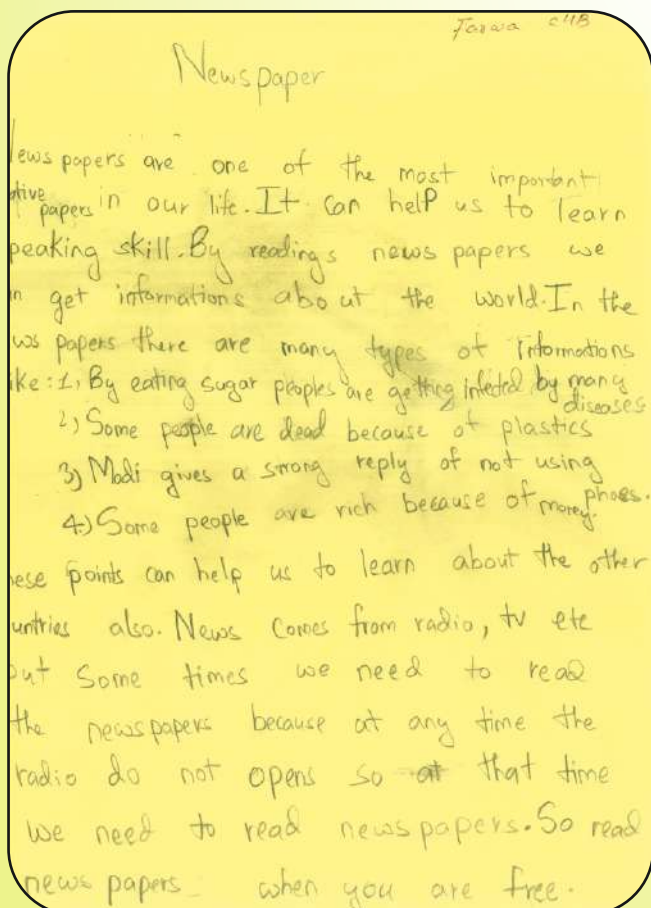 Tarwa C4B
Newspaper
News papers are one of the most important
papers in our life. It can help us to learn
speaking skill. By readings news papers we
can get informations about the world. In the
news papers there are many types of informations
like: 1, By eating sugar peoples are getting infected by many
diseases
2) Some people are dead because of plastics
3) Modi gives a strong reply of not using
phoes.
4.) Some people are rich because of money.
these points can help us to learn about the other
countries also. News comes from radio, tv etc
but some times we need to read
the newspapers because at any time the
radio do not opens so at that time
we need to read news papers. So read
news papers when you are free.